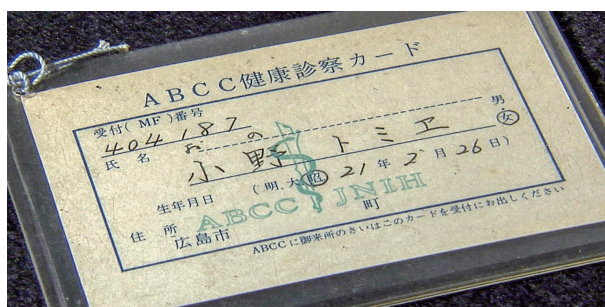 ABCC健康診察カード
受付(MF)番号
404187
おの
氏名 小野 トミヱ 男・女
生年月日 (明.大.昭 21年2月26日)
ABCC JNIH
住所
広島市 町
ABCCに御来所のさいはこのカードを受付にお出しください